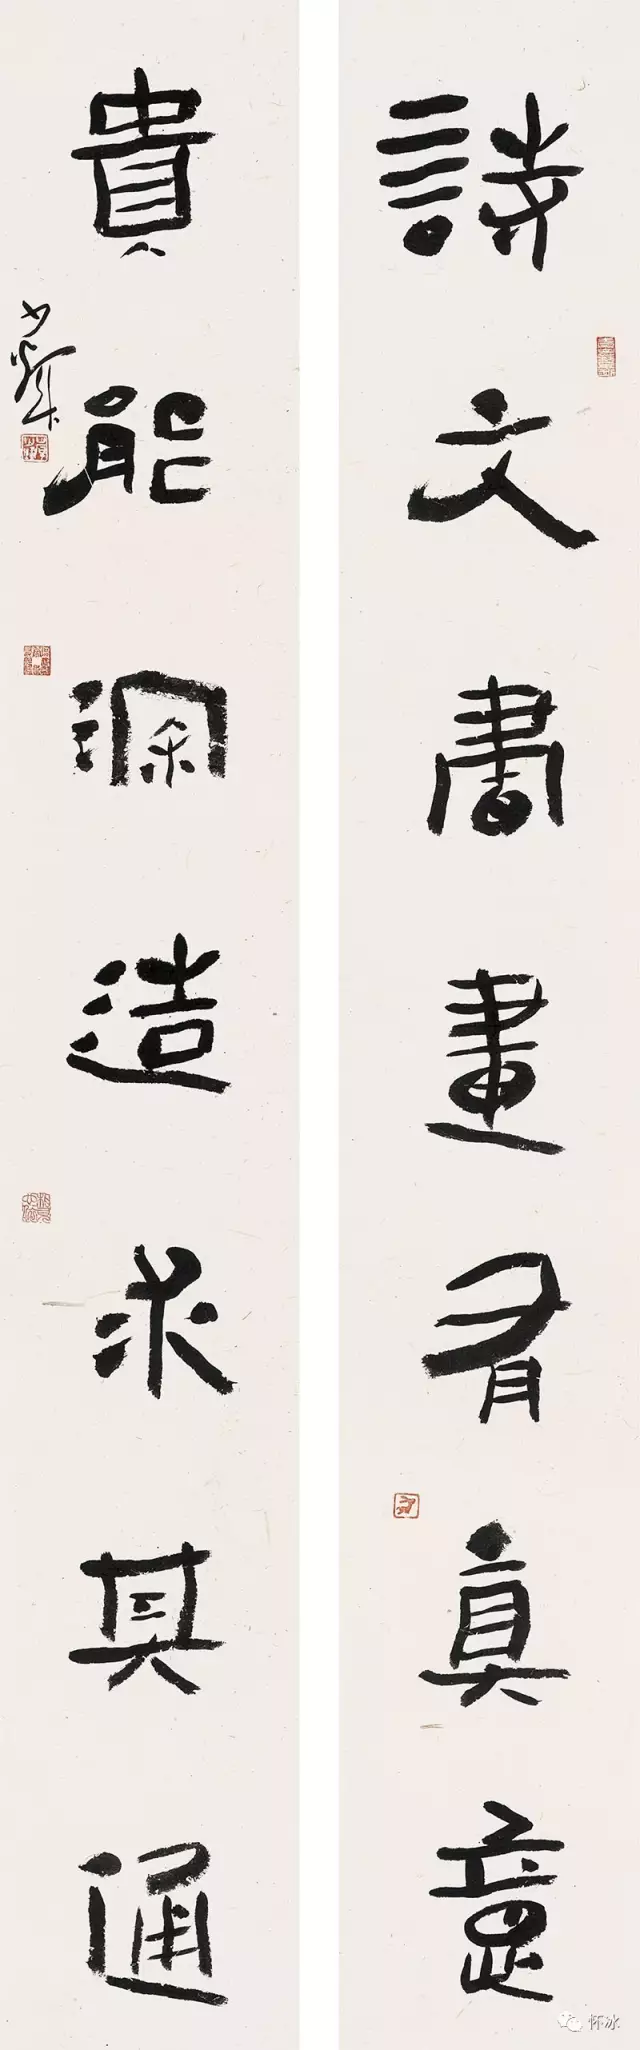 詩文書畫有真意
貴能深造求其通
怀冰